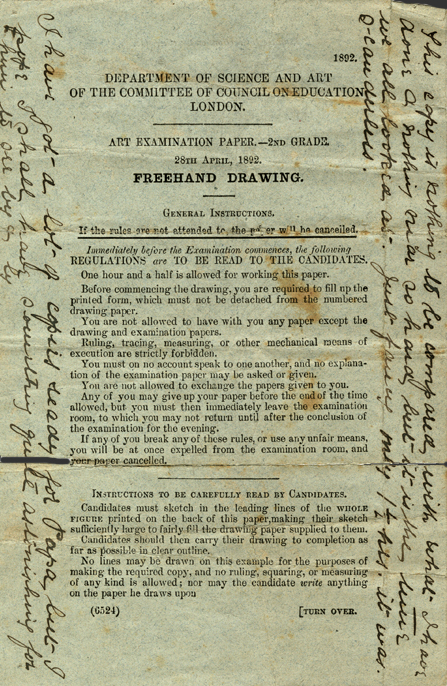 1892.
DEPARTMENT OF SCIENCE AND ART
OF THE COMMITTEE OF COUNCIL ON EDUCATION
LONDON.
ART EXAMINATION PAPER.—2ND GRADE.
28TH APRIL, 1892.
FREEHAND DRAWING.
GENERAL INSTRUCTIONS.
If the rules are not attended to the paper will be cancelled.
Immediately before the Examination commences, the following
REGULATIONS are TO BE READ TO THE CANDIDATES.
One hour and a half is allowed for working this paper.
Before commencing the drawing, you are required to fill up the
printed form, which must not be detached from the numbered
drawing paper.
You are not allowed to have with you any paper except the
drawing and examination papers.
Ruling, tracing, measuring, or other mechanical means of
execution are strictly forbidden.
You must on no account speak to one another, and no explana-
tion of the examination paper may be asked or given.
You are not allowed to exchange the papers given to you.
Any of you may give up your paper before the end of the time
allowed, but you must then immediately leave the examination
room, to which you may not return until after the conclusion of
the examination for the evening.
If any of you break any of these rules, or use any unfair means,
you will be at once expelled from the examination room, and
your paper cancelled.
INSTRUCTIONS TO BE CAREFULLY READ BY CANDIDATES.
Candidates must sketch in the leading lines of the WHOLE
FIGURE printed on the back of this paper, making their sketch
sufficiently large to fairly fill the drawing paper supplied to them.
Candidates should then carry their drawing to completion as
far as possible in clear outline.
No lines may be drawn on this example for the purposes of
making the required copy, and no ruling, squaring, or measuring
of any kind is allowed; nor may the candidate write anything
on the paper he draws upon
(6524)
[TURN OVER.
This copy is nothing to be compared with what I have
done & nothing near so hard, but it is the time
we all looked at. Just fancy only 1½ hrs it was.
Scandulus.
I have got a lot of copies ready for Papa but I
I shall have something quite astonishing for
him to see by &